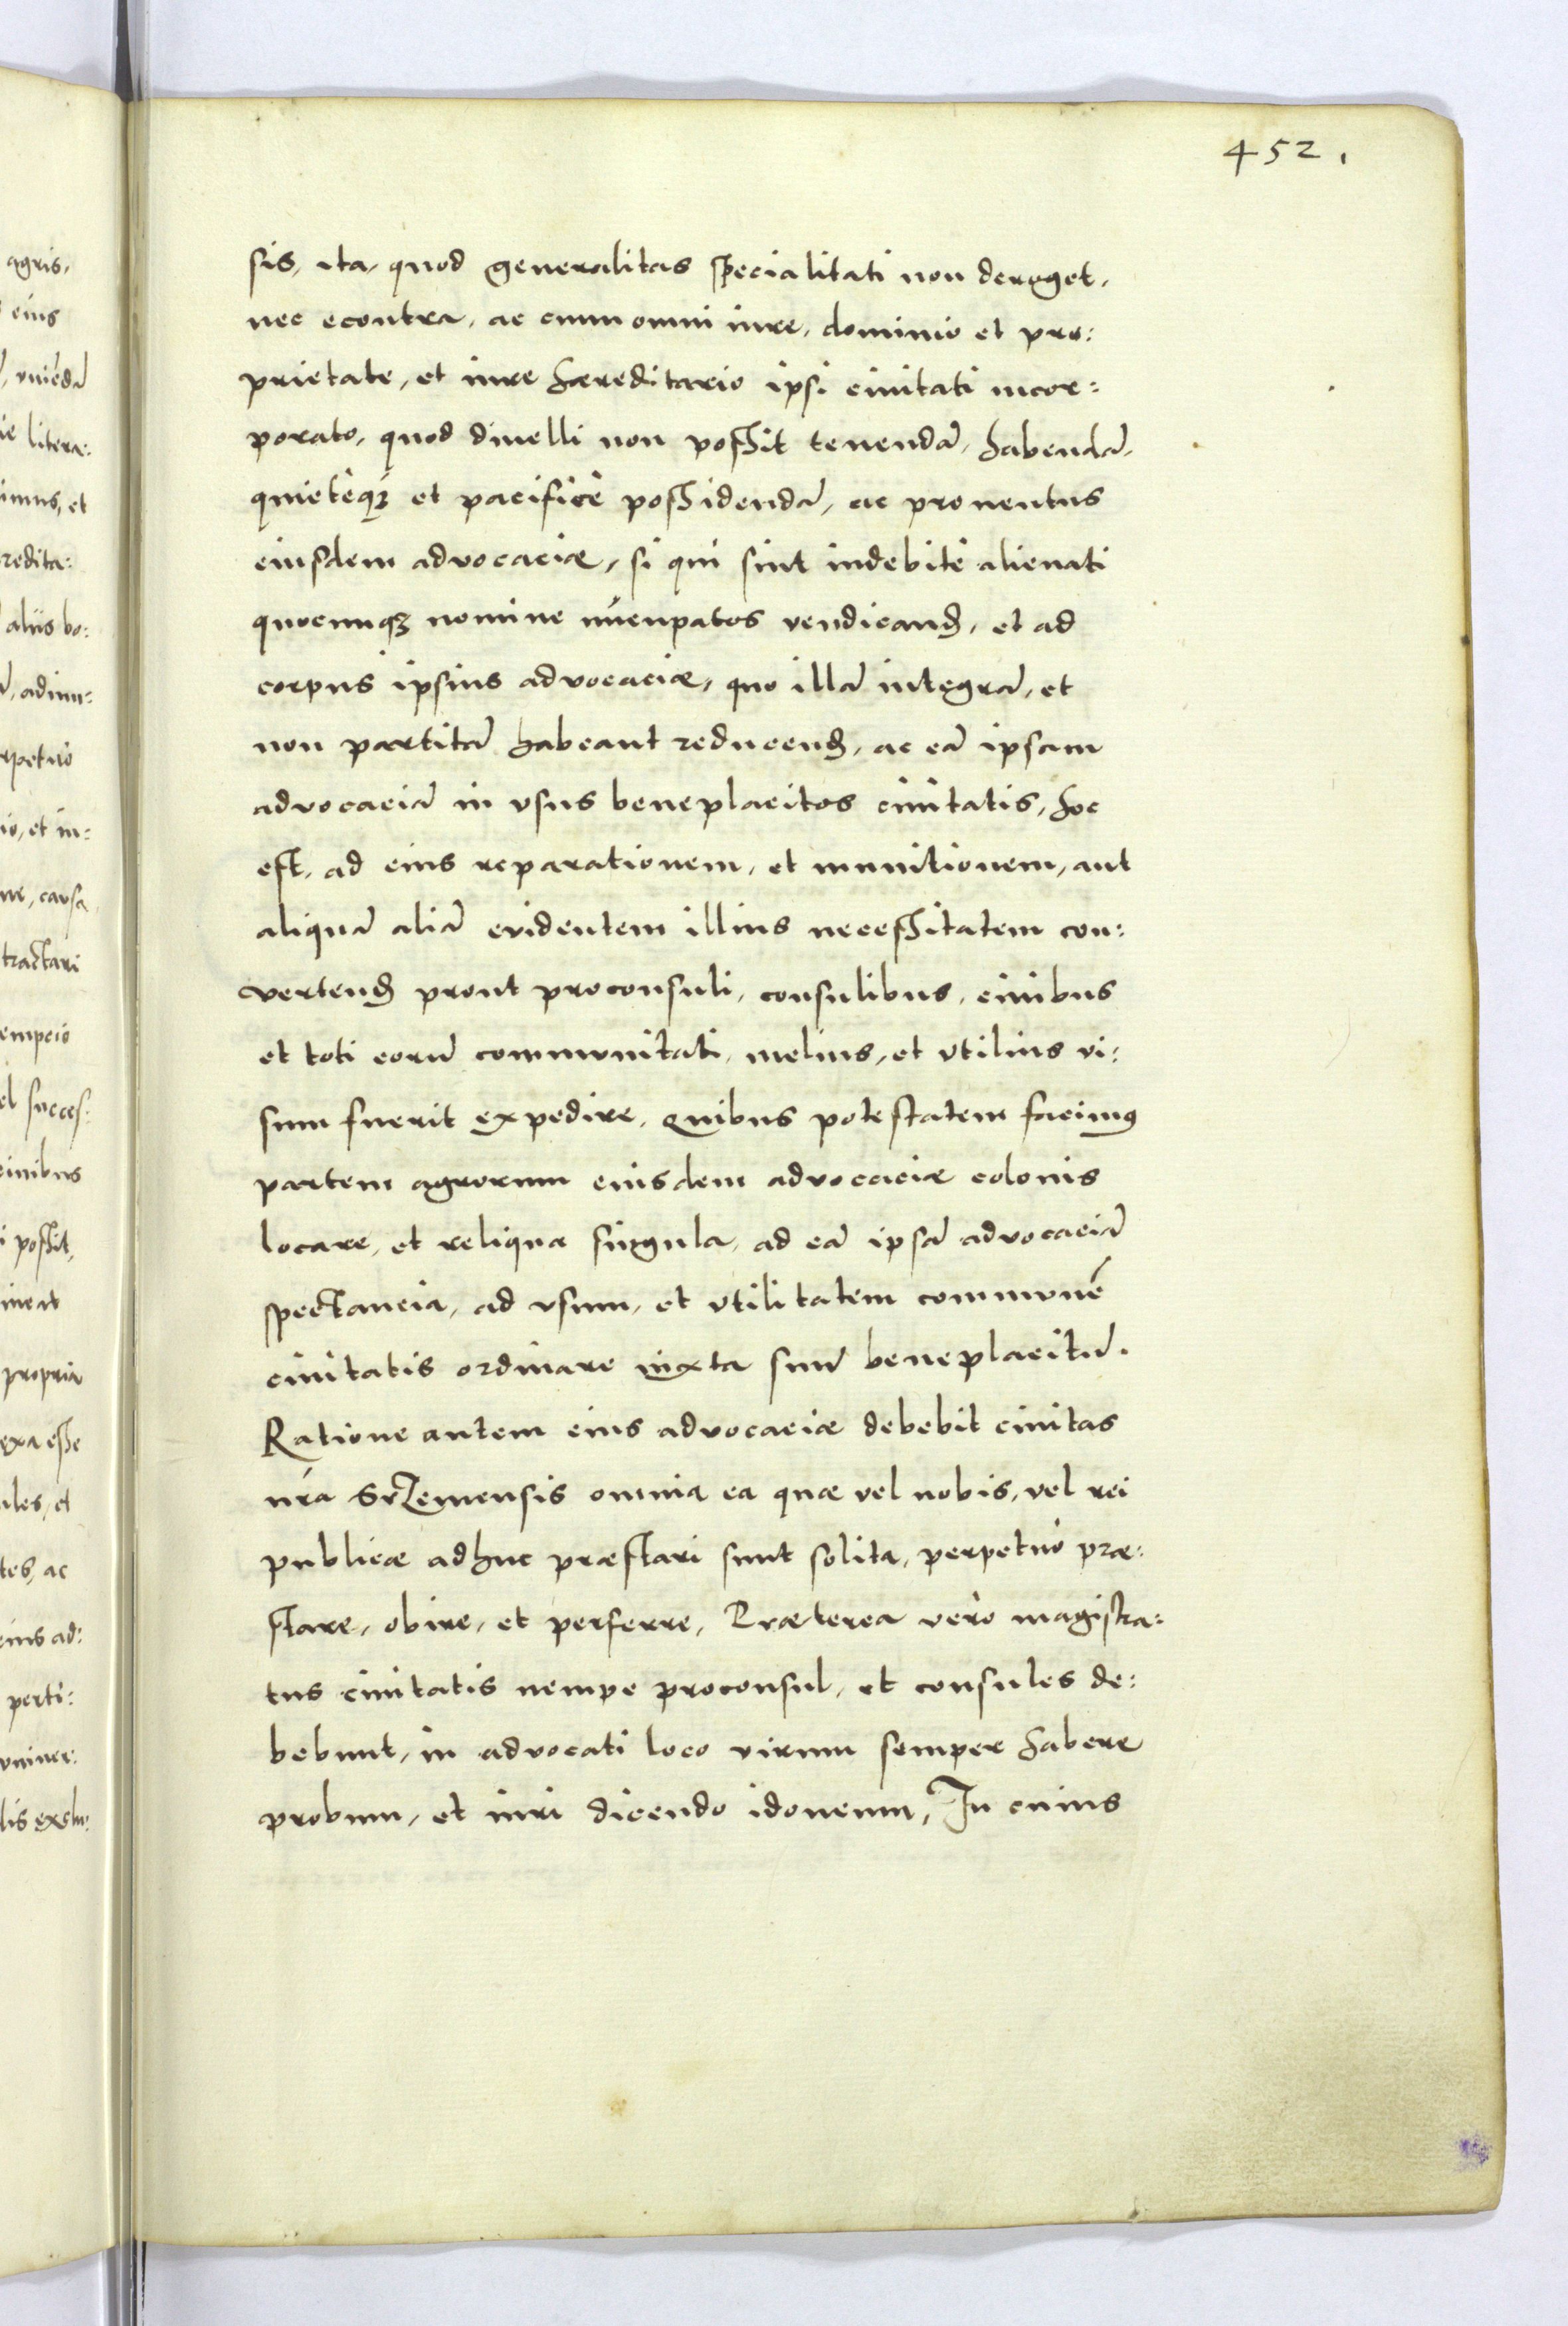 452.
sis, ita, quod generalitas specialitati non deroget,
nec econtra, ac cum omni iure, dominio et pro:
prietate, et iure haereditario ipsi ciuitati incor:
porato, quod diuelli non possit tenendā, habendā,
quietèqȝ et pacificè possidendā, ac prouentus
eiusdem advocaciæ, si qui sint indebitè alienati
quocunqȝ nomine nūcupatos vendicand̄, et ad
corpus ipsius advocaciæ, quo illā integrā, et
non partitā habeant reducend̄, ac eā ipsam
advocaciā in vsus beneplacitos ciuitatis, hoc
est, ad eius reparationem, et munitionem, aut
aliquā aliā evidentem illius necessitatem con:
vertend̄ prout proconsuli, consulibus, ciuibus
et toti eorū communitati, melius, et vtilius vi:
sum fuerit expedire, quibus potestatem facimus
partem agrorum eiusdem advocaciæ colonis
locare, et reliqua singula, ad eā ipsā advocaciā
spectancia, ad vsum, et vtilitatem communē
ciuitatis ordinare iuxta suū beneplacitū.
Ratione autem eius advocaciæ debebit ciuitas
nr̄a Srzemensis omnia ea quæ vel nobis, vel rei
publicæ adhuc præstari sunt solita, perpetuò præ:
stare, obire, et perferre, Præterea verò magistra:
tus ciuitatis nempe proconsul, et consules de:
bebunt, in advocati loco virum semper habere
probum, et iuri dicendo idoneum, In cuius